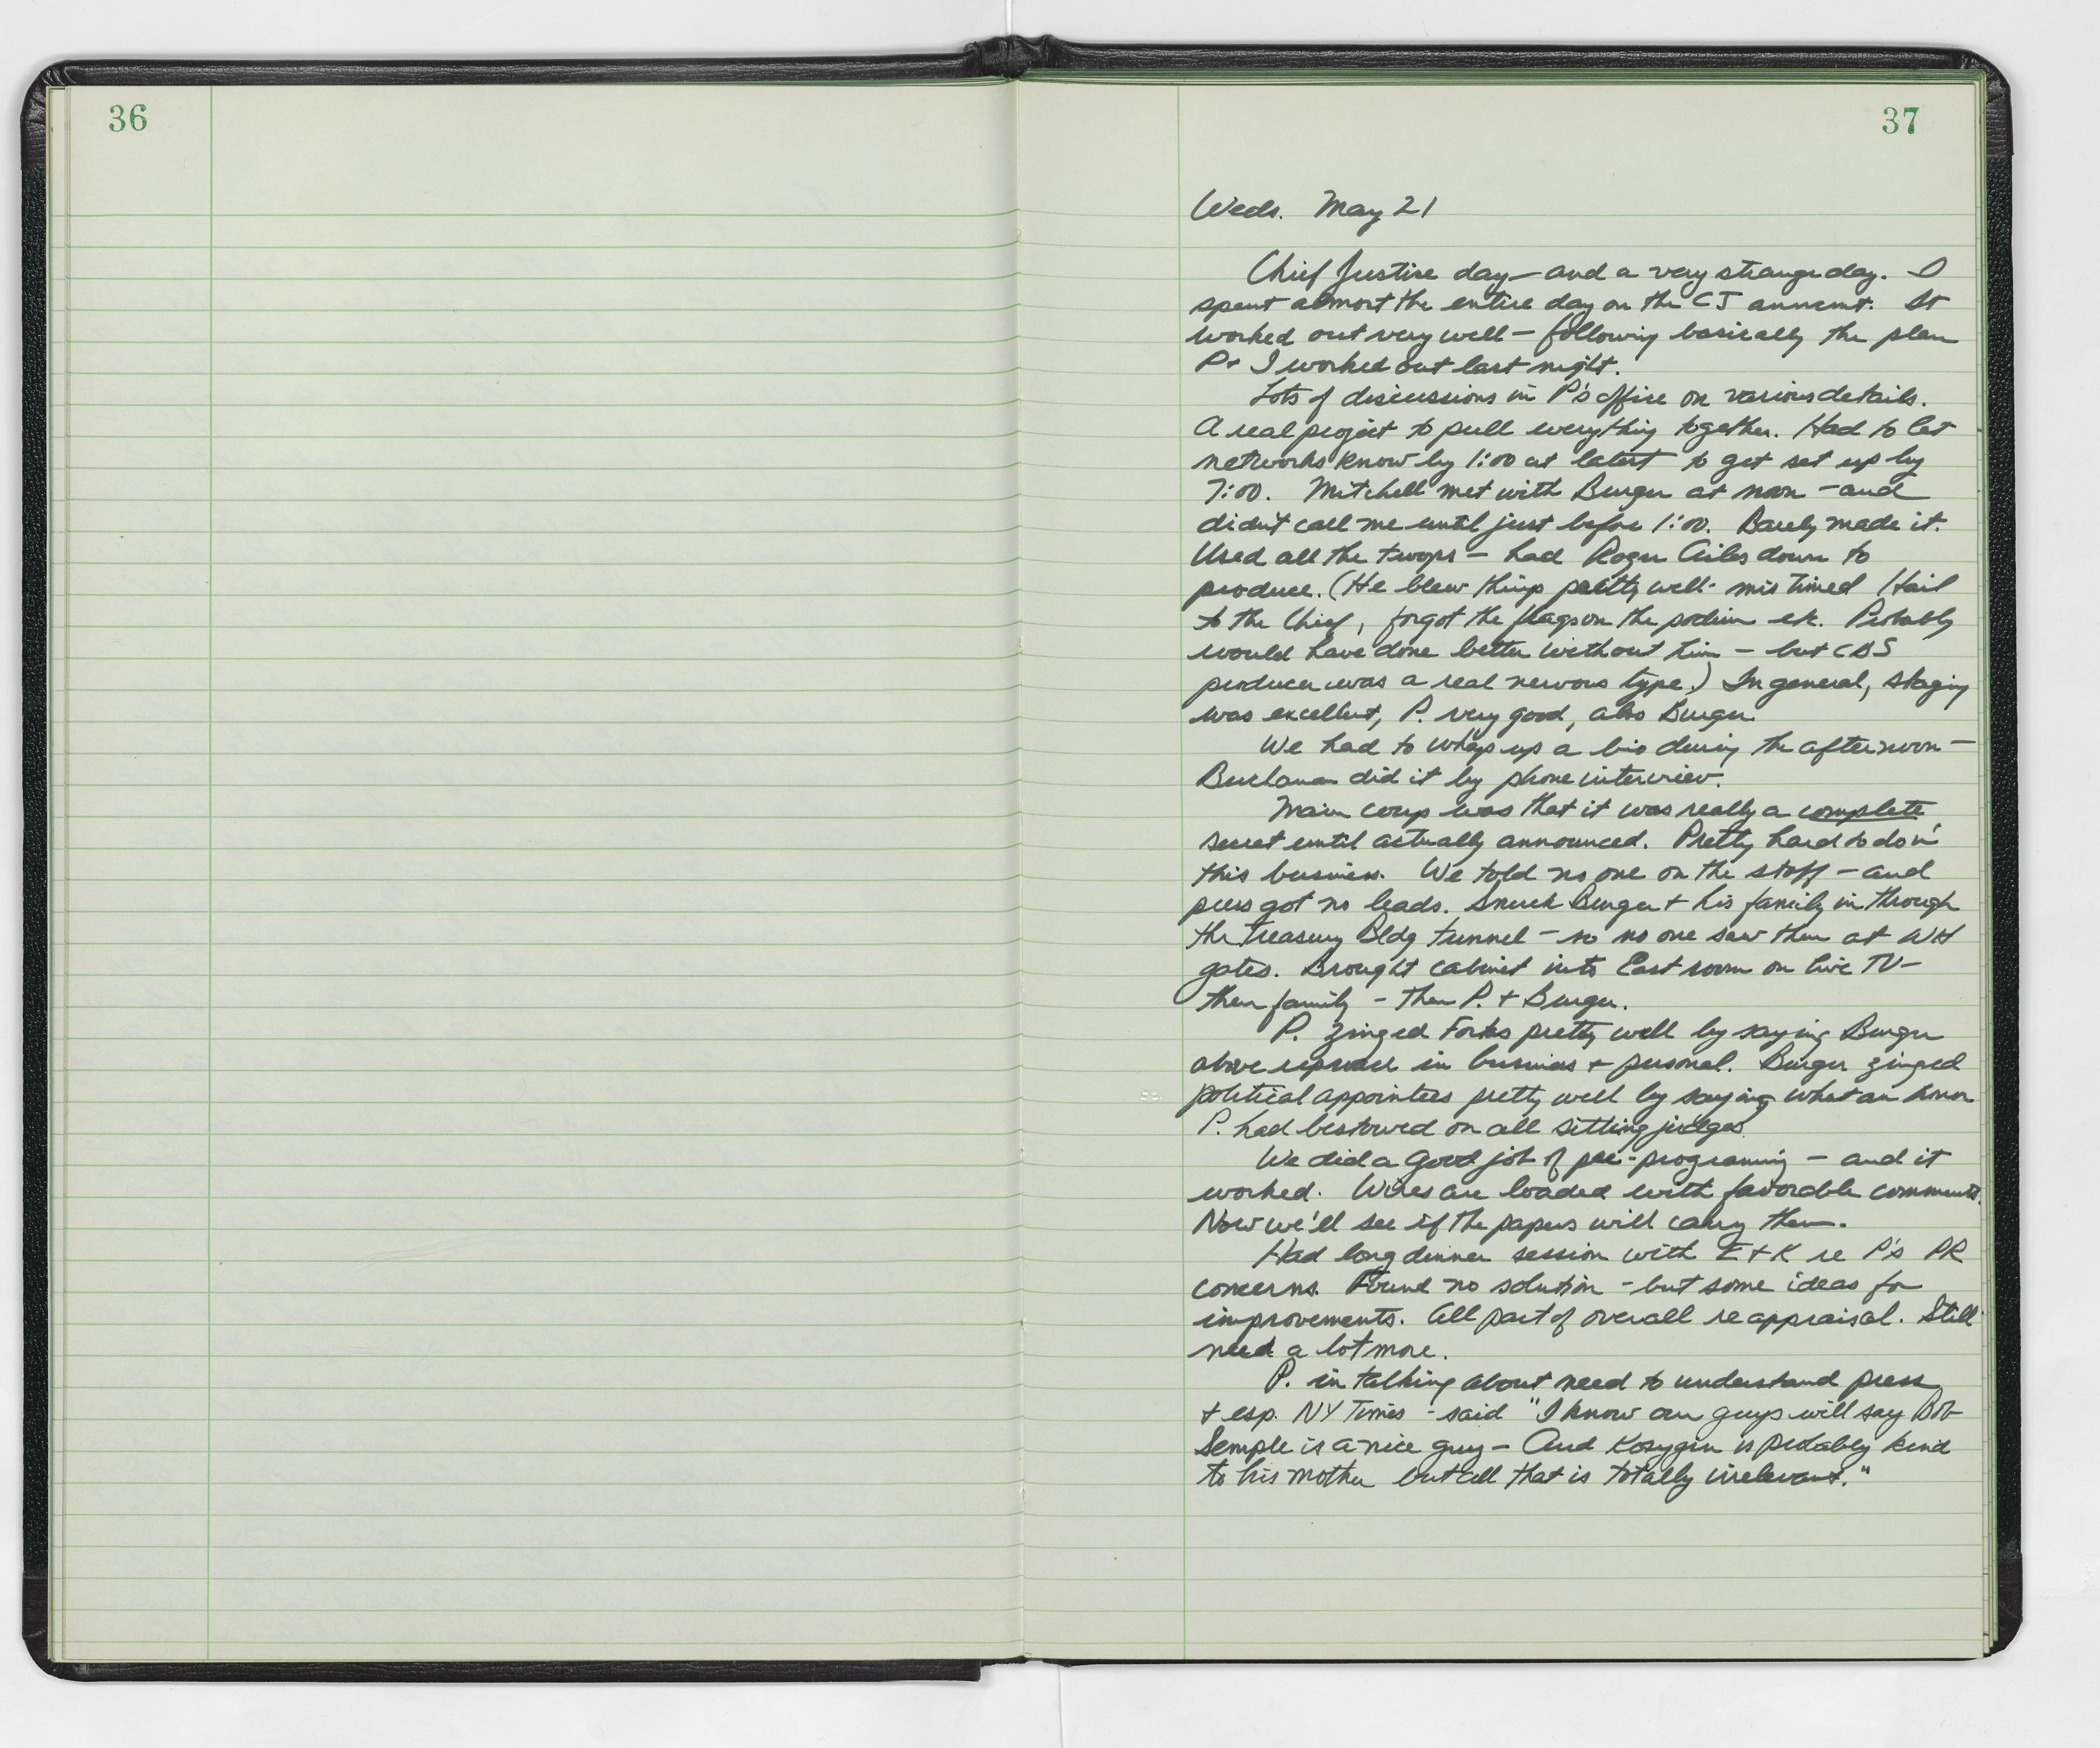 36
37
Weds. May 21
Chief Justice day — and a very strange day. I
spent almost the entire day on the CJ anncmt. It
worked out very well — following basically the plan
P + I worked out last night.
Lots of discussions in P's office on various details.
A real project to pull everything together. Had to let
networks know by 1:00 at latest to get set up by
7:00. Mitchell met with Burger at noon — and
didn't call me until just before 1:00. Barely made it.
Used all the troops — had Roger Ailes down to
produce. (He blew things pretty well - mis timed Hail
to the Chief, forgot the flags on the podium etc. Probably
would have done better without him — but CBS
producer was a real nervous type.) In general, staging
was excellent, P. very good, also Burger.
We had to whip up a bio during the afternoon —
Buchanan did it by phone interview.
Main coup was that it was really a complete
secret until actually announced. Pretty hard to do in
this business. We told no one on the staff — and
press got no leads. Snuck Burger + his family in through
the Treasury Bldg tunnel — so no one saw them at WH
gates. Brought cabinet into East room on live TV —
then family - then P. + Burger.
P. zinged Fortas pretty well by saying Burger
above reproach in business + personal. Burger zinged
political appointees pretty well by saying what an honor
P. had bestowed on all sitting judges.
We did a good job of pre-programing — and it
worked. Wires are loaded with favorable comments.
Now we'll see if the papers will carry them.
Had long dinner session with E + K re P's PR
concerns. Found no solution - but some ideas for
improvements. All part of overall reappraisal. Still
need a lot more.
P. in talking about need to understand press
+ esp. NY Times - said "I know our guys will say Bob
Semple is a nice guy — And Kosygin is probably kind
to his mother but all that is totally irrelevant."